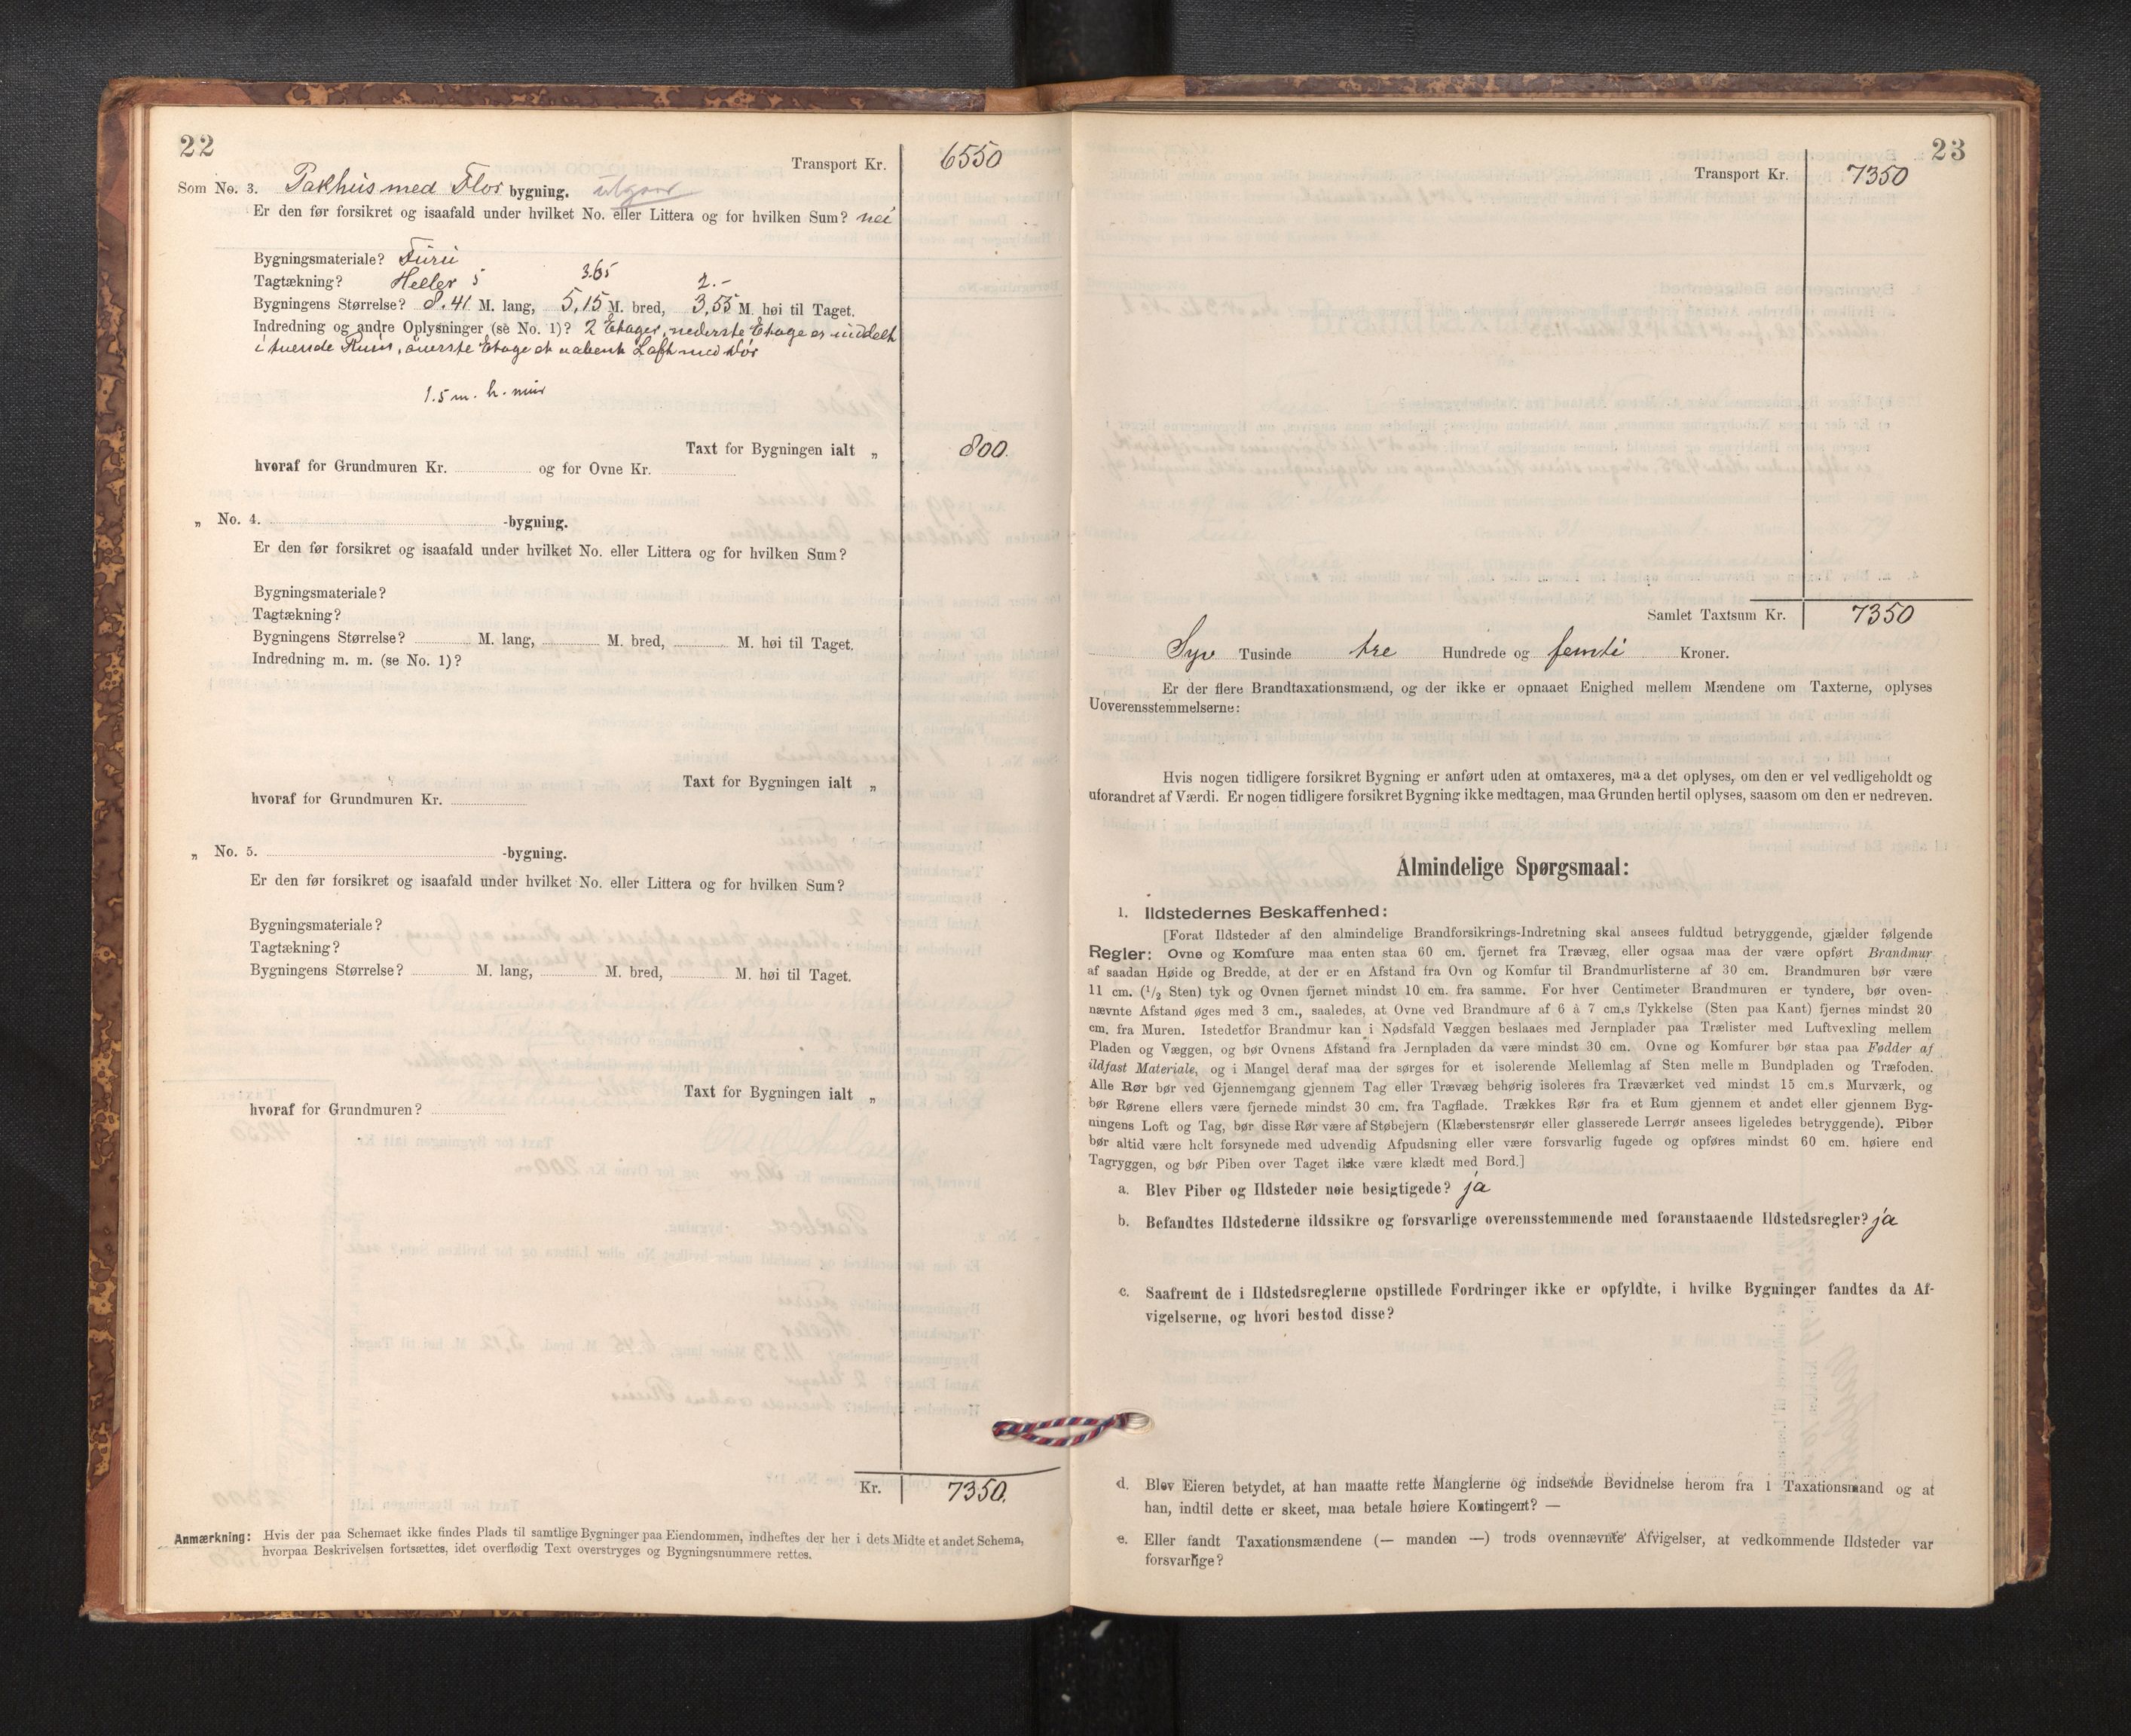 22
Transport Kr. 6550
Som No. 3. Pakhus med Flor bygning. utgaar
Er den før forsikret og isaafald under hvilket No. eller Littera og for hvilken Sum? nei
Bygningsmateriale? Furu
Tagtækning? Heller 5 3.65 2.-
Bygningens Størrelse? 8.41 M. lang, 5,15 M. bred, 3,55 M. høi til Taget.
Indredning og andre Oplysninger (se No. 1)? 2 Etager, nederste Etage er inddelt
i tvende Rum, øverste Etage et aabent Loft med dør
1.5 m. h. mur
Taxt for Bygningen ialt „ 800.
hvoraf for Grundmuren Kr. og for Ovne Kr.
„ No. 4. -bygning.
Er den før forsikret og isaafald under hvilket No. eller Littera og for hvilken Sum?
Bygningsmateriale?
Tagtækning?
Bygningens Størrelse? M. lang, M. bred, M. høi til Taget.
Indredning m. m. (se No. 1)?
Taxt for Bygningen ialt „
hvoraf for Grundmuren Kr.
„ No. 5. -bygning.
Er den før forsikret og isaafald under hvilket No. eller Littera og for hvilken Sum?
Bygningsmateriale?
Tagtækning?
Bygningens Størrelse? M. lang, M. bred, M. høi til Taget.
Taxt for Bygningen ialt „
hvoraf for Grundmuren?
Kr. 7350.
Anmærkning: Hvis der paa Schemaet ikke findes Plads til samtlige Bygninger paa Eiendommen, indheftes der her i dets Midte et andet Schema,
hvorpaa Beskrivelsen fortsættes, idet overflødig Text overstryges og Bygningsnummere rettes.
23
Transport Kr. 7350
Samlet Taxtsum Kr. 7350
Syv Tusinde tre Hundrede og femti Kroner.
Er der flere Brandtaxationsmænd, og der ikke er opnaaet Enighed mellem Mændene om Taxterne, oplyses
Uoverensstemmelserne:
Hvis nogen tidligere forsikret Bygning er anført uden at omtaxeres, maa det oplyses, om den er vel vedligeholdt og
uforandret af Værdi. Er nogen tidligere forsikret Bygning ikke medtagen, maa Grunden hertil oplyses, saasom om den er nedreven.
Almindelige Spørgsmaal:
1. Ildstedernes Beskaffenhed:
[Forat Ildsteder af den almindelige Brandforsikrings-Indretning skal ansees fuldtud betryggende, gjælder følgende
Regler: Ovne og Komfure maa enten staa 60 cm. fjernet fra Trævæg, eller ogsaa maa der være opført Brandmur
af saadan Høide og Bredde, at der er en Afstand fra Ovn og Komfur til Brandmurlisterne af 30 cm. Brandmuren bør være
11 cm. (1/2 Sten) tyk og Ovnen fjernet mindst 10 cm. fra samme. For hver Centimeter Brandmuren er tyndere, bør oven-
nævnte Afstand øges med 3 cm., saaledes, at Ovne ved Brandmure af 6 à 7 cm.s Tykkelse (Sten paa Kant) fjernes mindst 20
cm. fra Muren. Istedetfor Brandmur kan i Nødsfald Væggen beslaaes med Jernplader paa Trælister med Luftvexling mellem
Pladen og Væggen, og bør Ovnens Afstand fra Jernpladen da være mindst 30 cm. Ovne og Komfurer bør staa paa Fødder af
ildfast Materiale, og i Mangel deraf maa der sørges for et isolerende Mellemlag af Sten mellem Bundpladen og Træfoden.
Alle Rør bør ved Gjennemgang gjennem Tag eller Trævæg behørig isoleres fra Træværket ved mindst 15 cm.s Murværk, og
bør Rørene ellers være fjernede mindst 30 cm. fra Tagflade. Trækkes Rør fra et Rum gjennem et andet eller gjennem Byg-
ningens Loft og Tag, bør disse Rør være af Støbejern (Klæberstensrør eller glasserede Lerrør ansees ligeledes betryggende). Piber
bør altid være helt forsynede med udvendig Afpudsning eller være forsvarlig fugede og opføres mindst 60 cm. høiere end
Tagryggen, og bør Piben over Taget ikke være klædt med Bord.]
a. Blev Piber og Ildsteder nøie besigtigede? ja
b. Befandtes Ildstederne ildssikre og forsvarlige overensstemmende med foranstaaende Ildstedsregler? ja
c. Saafremt de i Ildstedsreglerne opstillede Fordringer ikke er opfyldte, i hvilke Bygninger fandtes da Af-
vigelserne, og hvori bestod disse?
d. Blev Eieren betydet, at han maatte rette Manglerne og indsende Bevidnelse herom fra 1 Taxationsmand og at
han, indtil dette er skeet, maa betale høiere Kontingent? —
e. Eller fandt Taxationsmændene (— manden —) trods ovennævnte Afvigelser, at vedkommende Ildsteder var
forsvarlige?